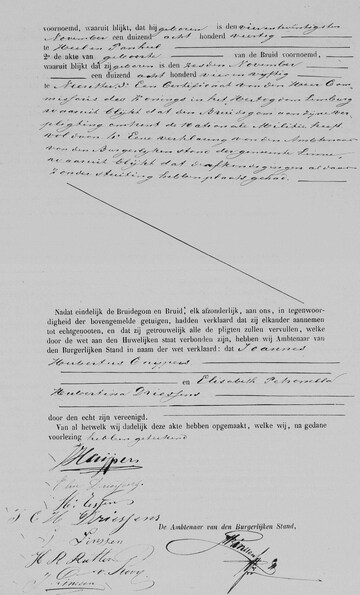 voornoemd, waaruit blijkt, dat hij geboren is den vierentwintigsten
November een duizend acht honderd veertig
te Heel en Panheel
2e de akte van geboorte van de Bruid voornoemd,
waaruit blijkt dat zij geboren is den zesden November
een duizend acht honderd vier en vyftig
te Neeritter 3e Een Certificaat van den Heer Com
missaris des Konings in het Hertogdom Limburg
waaruit blijkt dat den Bruidegom aan zyne ver
pligting omtrent de Nationale Militie heeft
voldaan 4e Eene verklaring van den Ambtenaar
van den Burgerlyken stand der gemeente
waaruit blijkt dat de afkondigingen aldaar
zonder stuiting hebben plaats gehad.
Nadat eindelijk de Bruidegom en Bruid, elk afzonderlijk, aan ons, in tegenwoor-
digheid der bovengemelde getuigen, hadden verklaard dat zij elkander aannemen
tot echtgenooten, en dat zij getrouwelijk alle de pligten zullen vervullen, welke
door de wet aan den Huwelijken staat verbonden zijn, hebben wij Ambtenaar van
den Burgerlijken Stand in naam der wet verklaard: dat Joannes
Hubertus Cuypers
en Elisabeth Petronella
Hubertina Driessens
door den echt zijn vereenigd.
Van al hetwelk wij dadelijk deze akte hebben opgemaakt, welke wij, na gedane
voorlezing hebben geteekend
Driessens
De Ambtenaar van den Burgerlijken Stand,